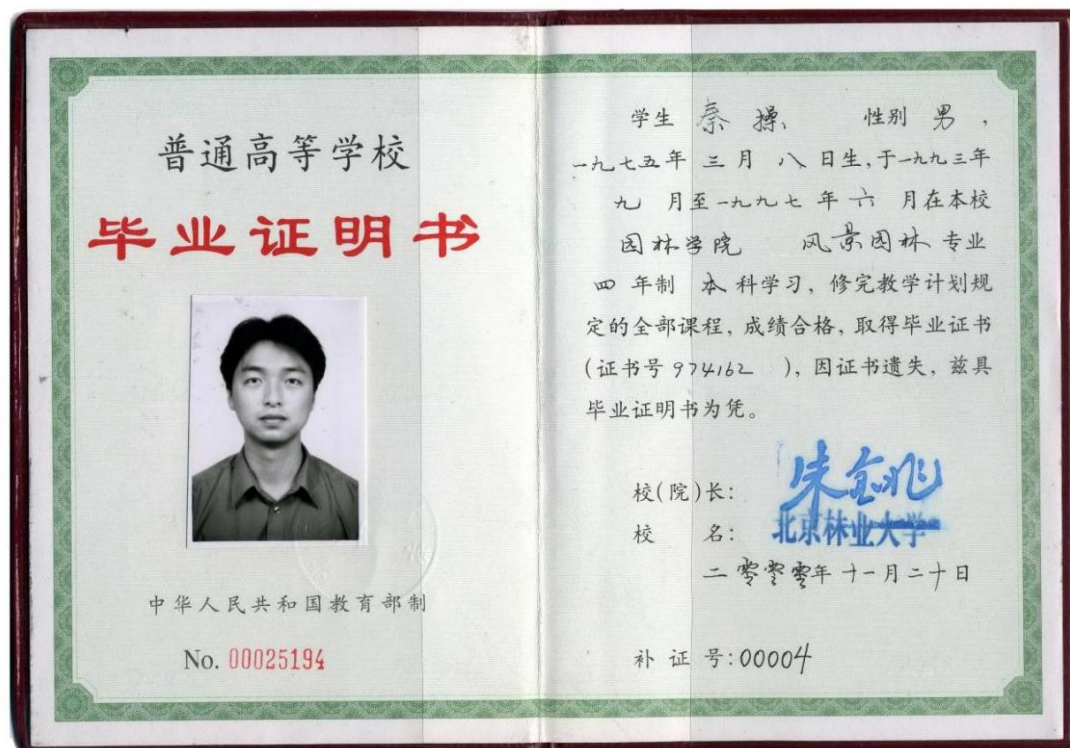 普通高等学校
毕业证明书
中华人民共和国教育部制
No. 00025194
学生 秦操 性别 男,
一九七五年 三月 八日生,于一九九三年
九 月至一九九七 年 六 月在本校
园林学院 风景园林 专业
四 年制 本 科学习, 修完教学计划规
定的全部课程, 成绩合格, 取得毕业证书
(证书号 974162 ), 因证书遗失, 兹具
毕业证明书为凭。
校(院)长: 朱金兆
校 名: 北京林业大学
二零零零年 十一月二十日
补 证 号: 00004